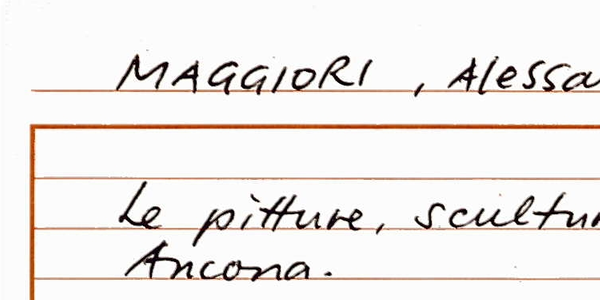 MAGGIORI, Alessa
Le pitture, scultur
Ancona.